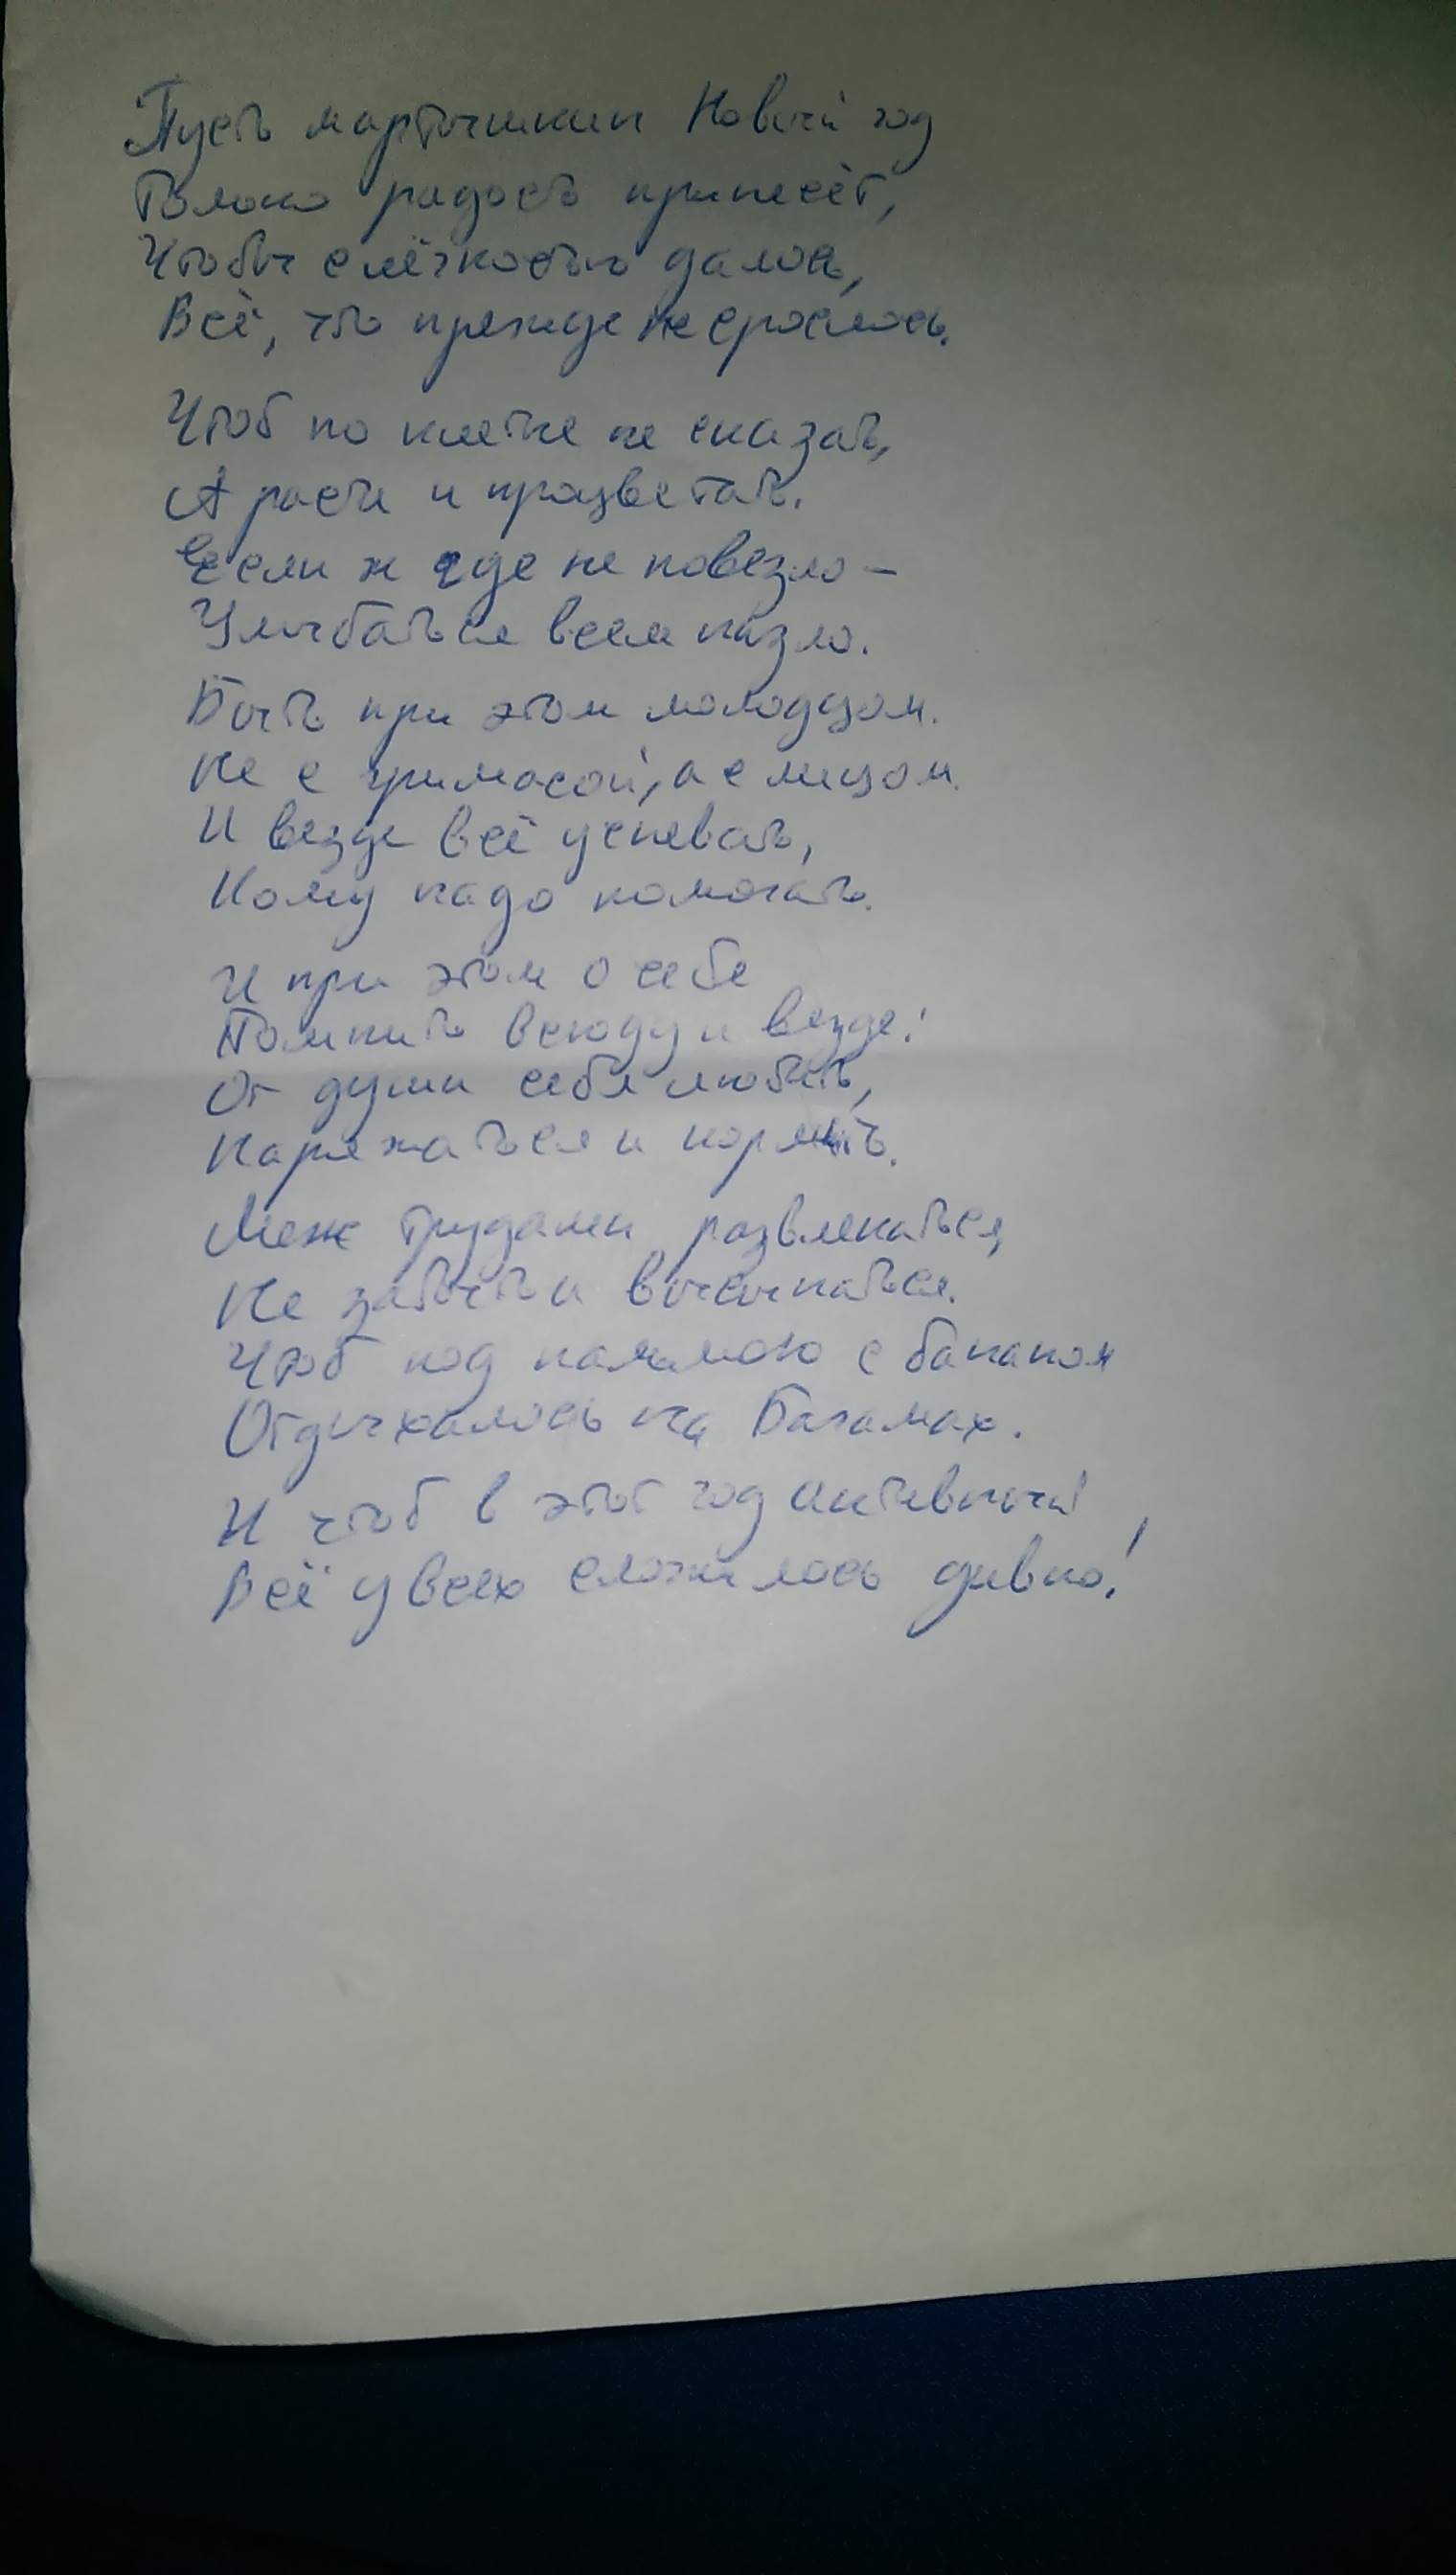 Пусть мартышкин Новый год
Только радость принесёт,
Чтобы с лёгкостью далось,
Всё, что прежде не срослось.
Чтоб по клетке не скакать,
А расти и процветать.
Если ж где не повезло —
Улыбаться всем назло.
Быть при этом молодцом.
Не с гримасой, а с лицом.
И везде всё успевать,
Кому надо помогать.
И при этом о себе
Помнить всюду и везде:
От души себя любить,
Наряжаться и кормить.
Меж трудами развлекаться,
Не забыть и высыпаться.
Чтоб под пальмою с бананом
Отдыхалось на Багамах.
И чтоб в этот год активный
Всё у всех сложилось дивно!